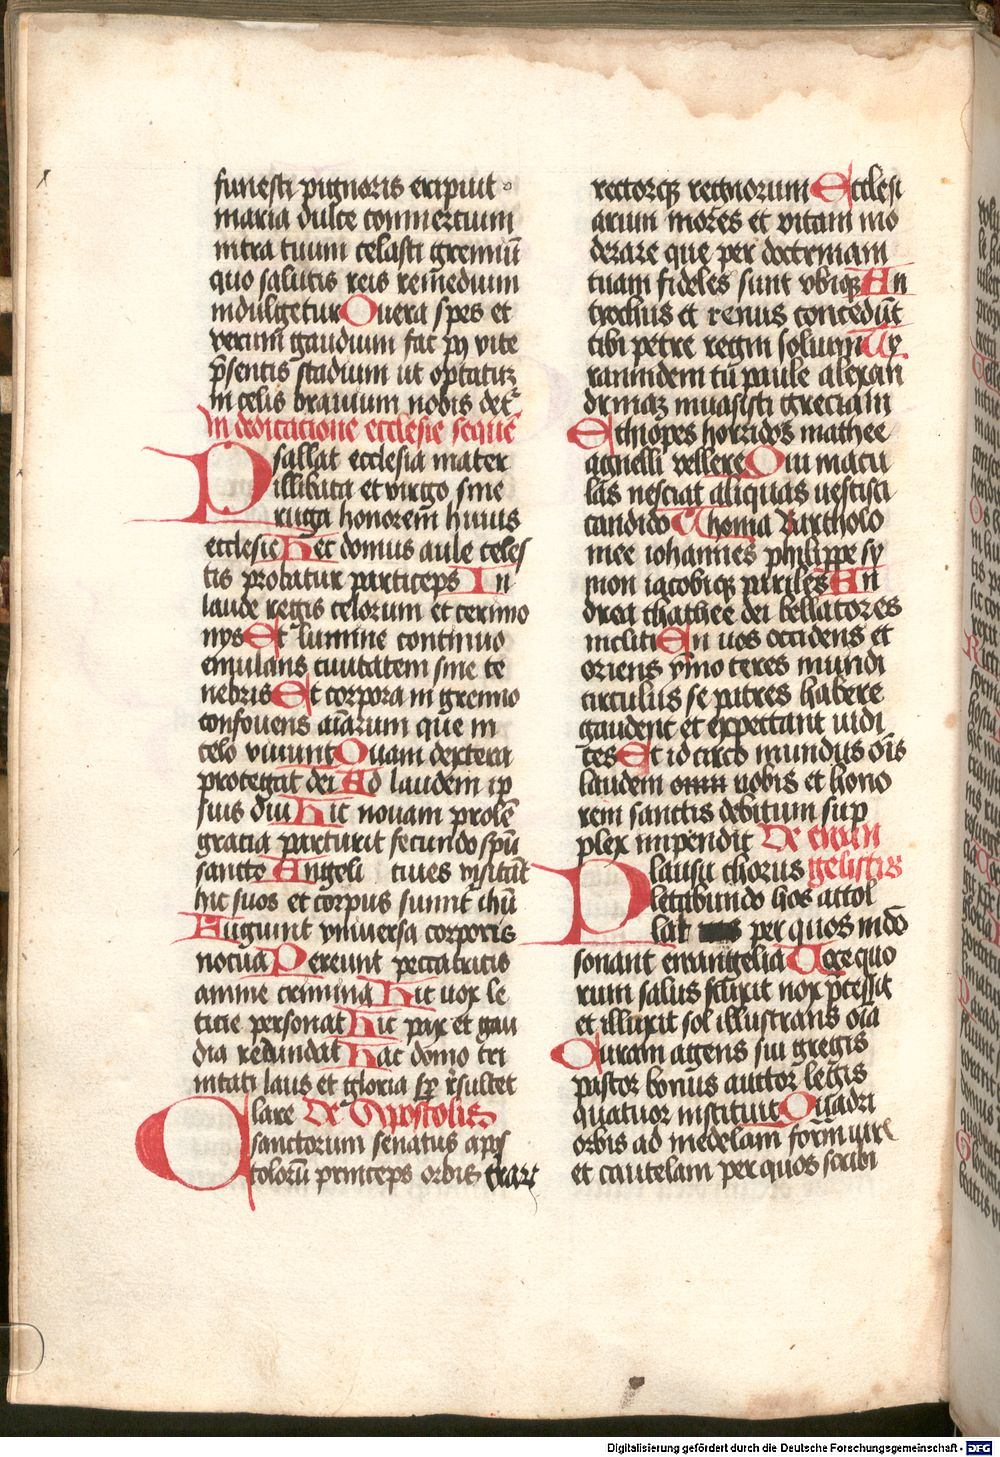 funesti pignoris eripuit
maria dulce commercium
intra tuum celasti gremiū
quo salutis reis remedium
indulgetur O uera spes et
verum gaudium fac py vite
p̄sentis stadium ut optatū
in celis brauium nobis det᷑
In dedicatione ecclesie sequē
Psallat ecclesia mater
illibata et virgo sine
ruga honorem huius
ecclesie Hec domus aule celes
tis probatur particeps In
laude regis celorum et cerimo
nys Et lumine continuo
emulans ciuitatem sine te
nebris Et corpora in gremio
confouens aīarum que in
celo viuunt Quam dextera
protegat dei Ad laudem ip
sius diu Hic nouam prolē
gracia parturit fecundo spū
sancto Angeli ciues visitāt
hic suos et corpus sumit ihū
Fugiunt vniuersa corporis
nocua Pereunt peccatricis
anime crimina Hic uox le
ticie personat Hic pax et gau
dia redundat Hac domo tri
nitati laus et gloria sp̄ r̄sultet
Clare De Apostolis
sanctorum senatus apos
tolorū princeps orbis terrar̄
rectorq̨ regnorum Ecclesi
arum mores et vitam mo
derare que per doctrinam
tuam fideles sunt vbiq̨ An
tiochus et renus concedūt
tibi petre regni solium Ty
rannidem tū paule alexan
drinaꝫ inuasisti greciam
Ethiopes horridos mathee
agnelli vellere Qui macu
las nesciat aliquas uestisti
candido Thoma Bartholo
mee iohannes philippe sy
mon iacobiq̨ pariles An
drea thathee dei bellatores
incliti En uos occidens et
oriens ymo teres mundi
circulus se patres habere
gaudent et expectant uidi
tes Et id circo mundus oīs
laudem omn uobis et hono
rem sanctis debitum sup
plex impendit De ewan
gelistis
Plausu chorus
letabundo hos attol
lat per quos mōdo
sonant ewangelia Voce quo
rum salus fluxit nox p̄cessit
et illuxit sol illustrans oīa
Curam agens sui gregis
pastor bonus auctor legis
quatuor instituit Quadri
orbis ad medelam formaure
et cautelam per quos scribi
Digitalisierung gefördert durch die Deutsche Forschungsgemeinschaft - DFG